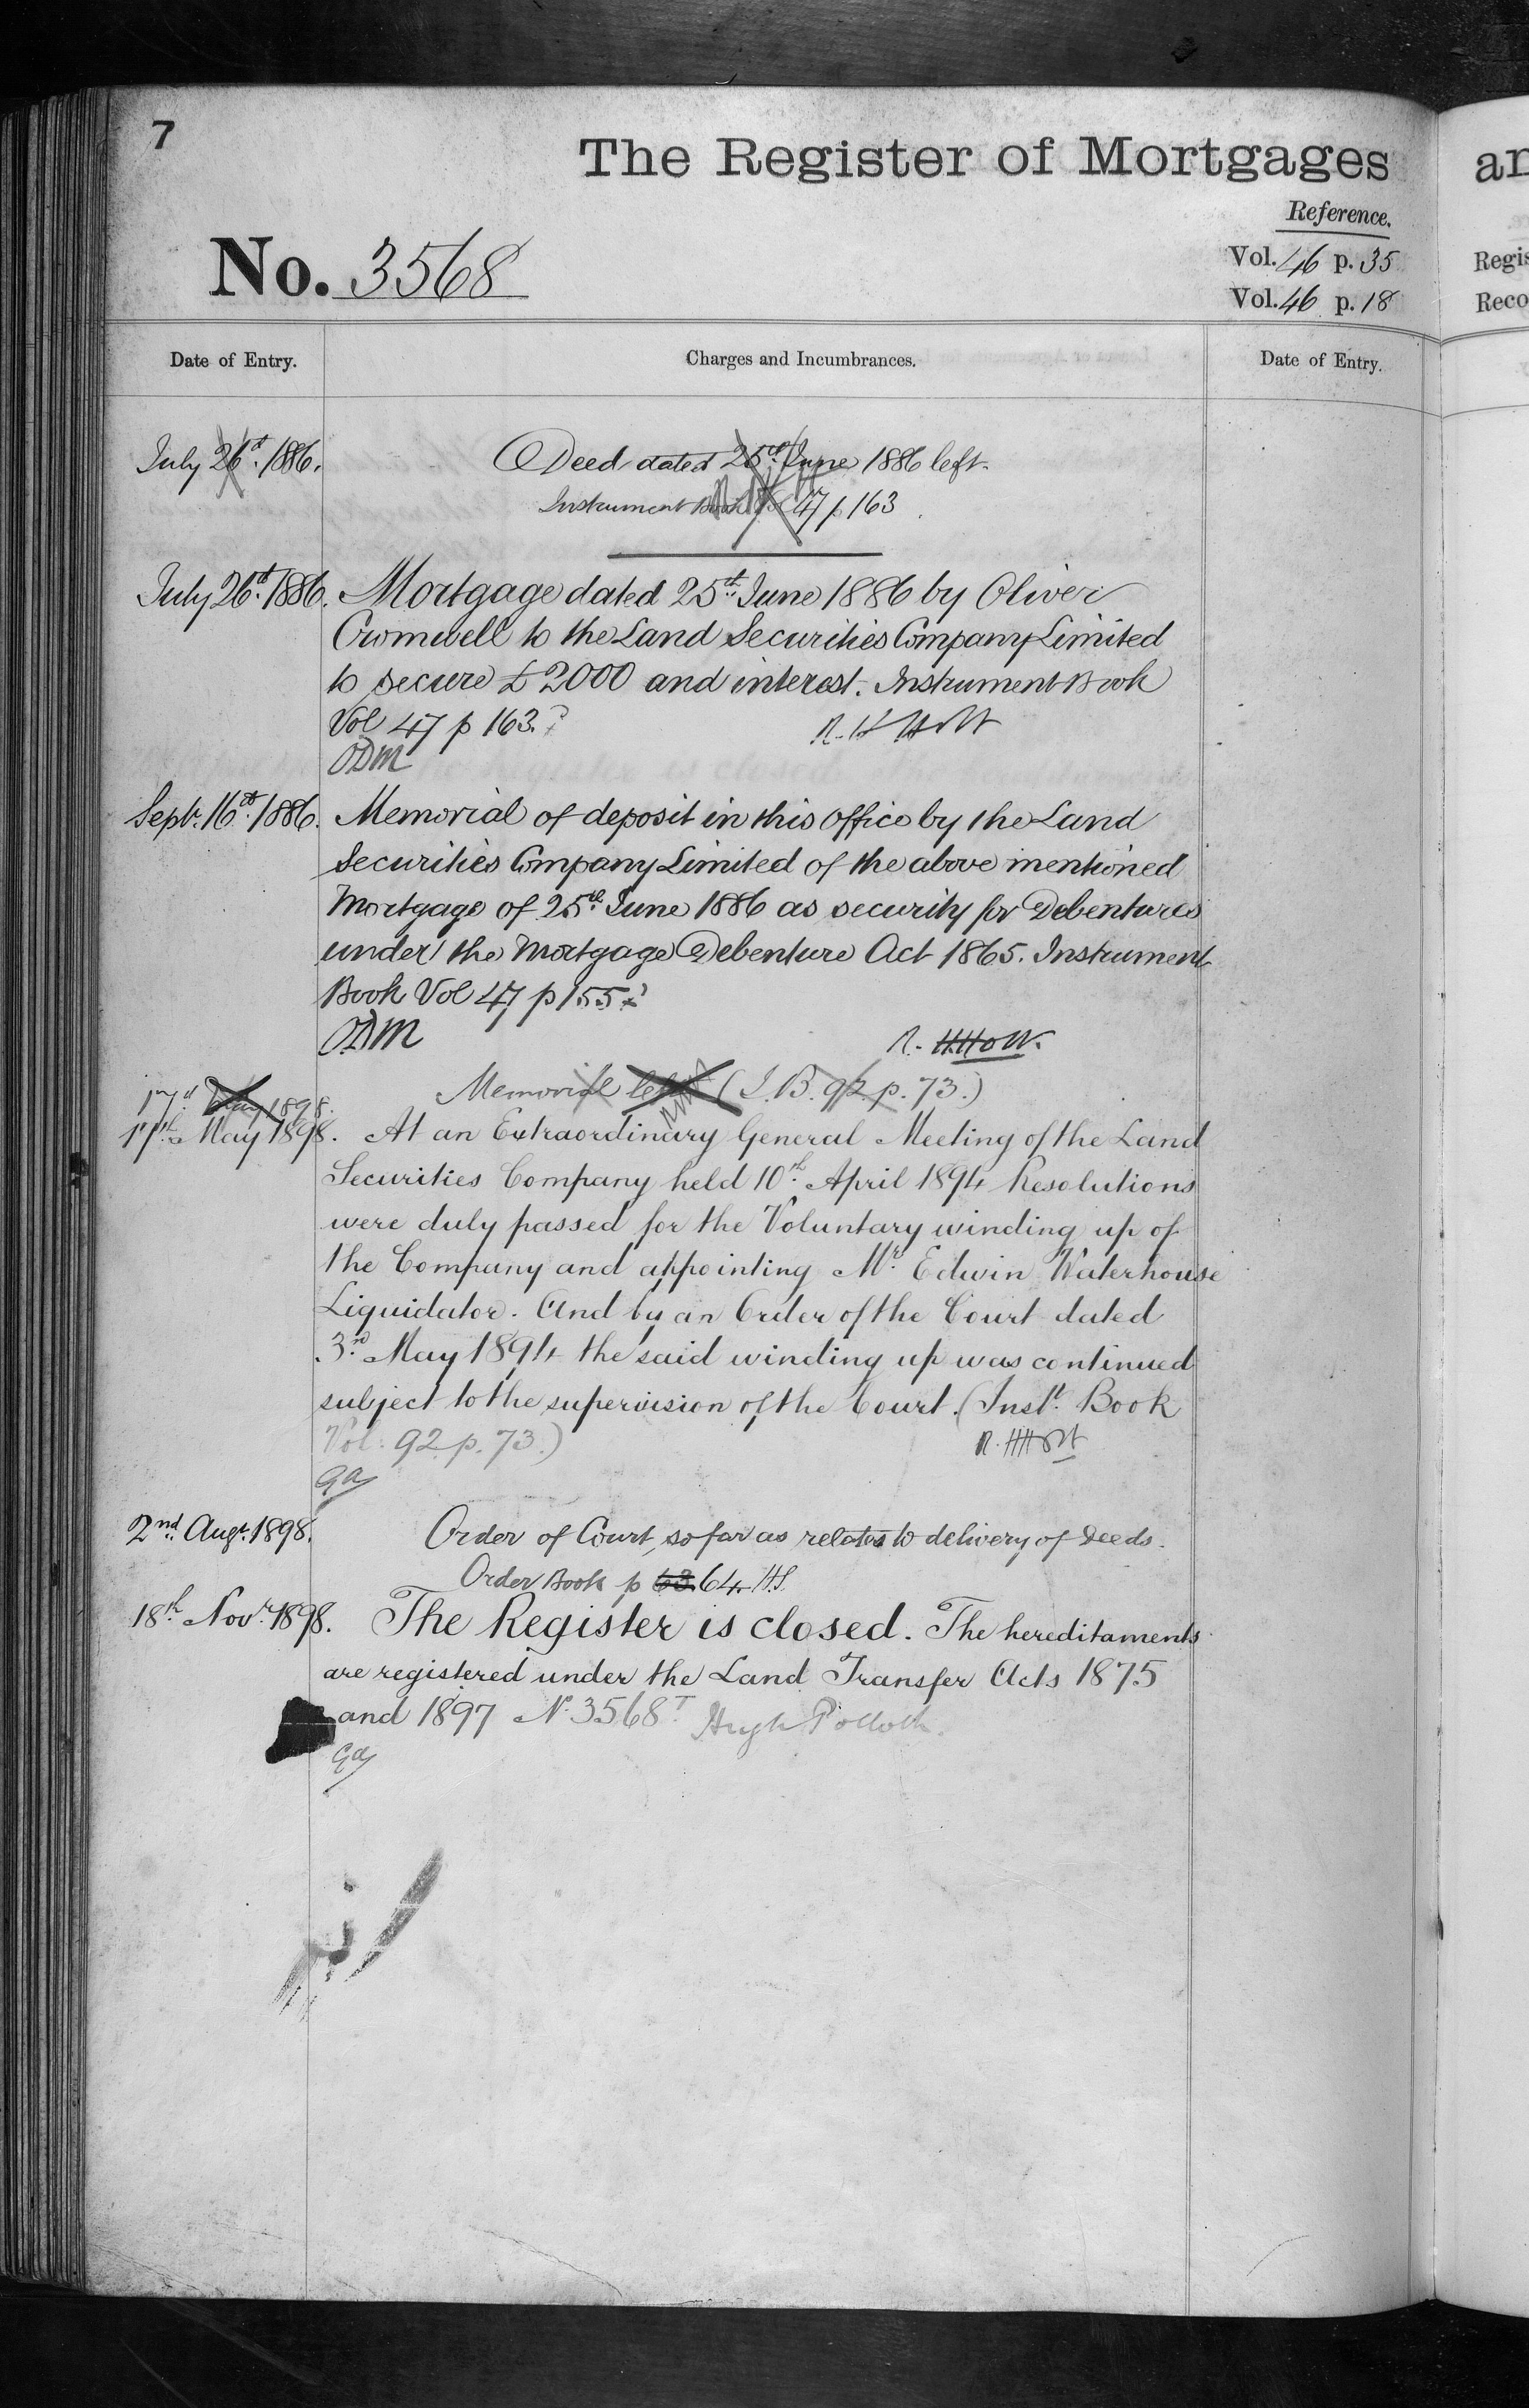 7
The Register of Mortgages
Reference.
No. 3568
Vol. 46 p. 35
Vol. 46 p. 18
Date of Entry.
Charges and Incumbrances.
Date of Entry.
July 26th. 1886.
Deed dated 25th June 1886 left.
Instrument Book Vol 47 p 163
July 26th. 1886. Mortgage dated 25th June 1886 by Oliver
Cromwell to the Land Securities Company Limited
to secure £2000 and interest. Instrument Book
Vol 47 p 163.
R. H Holt
ODM
Septr. 16th. 1886. Memorial of deposit in this office by the Land
Securities Company Limited of the above mentioned
Mortgage of 25th June 1886 as security for Debentures
under the Mortgage Debenture Act 1865. Instrument
Book Vol 47 p 155
ODM
R. H Holt
17th May 1898.
Memorial left (I.B. 92. p. 73.)
17th May 1898. At an Extraordinary General Meeting of the Land
Securities Company held 10th April 1894 Resolutions
were duly passed for the Voluntary winding up of
the Company and appointing Mr. Edwin Waterhouse
Liquidator. And by an Order of the Court dated
3rd May 1894 the said winding up was continued
subject to the supervision of the Court. (Inst. Book
Vol: 92 p. 73.)
R. H Holt
2nd. Augt. 1898.
Order of Court, so far as relates to delivery of Deeds.
Order Book p 63. 64. HS.
18th Novr. 1898. The Register is closed. The hereditaments
are registered under the Land Transfer Acts 1875
and 1897 No. 3568T Hugh Pollock.
an
Regis
Reco